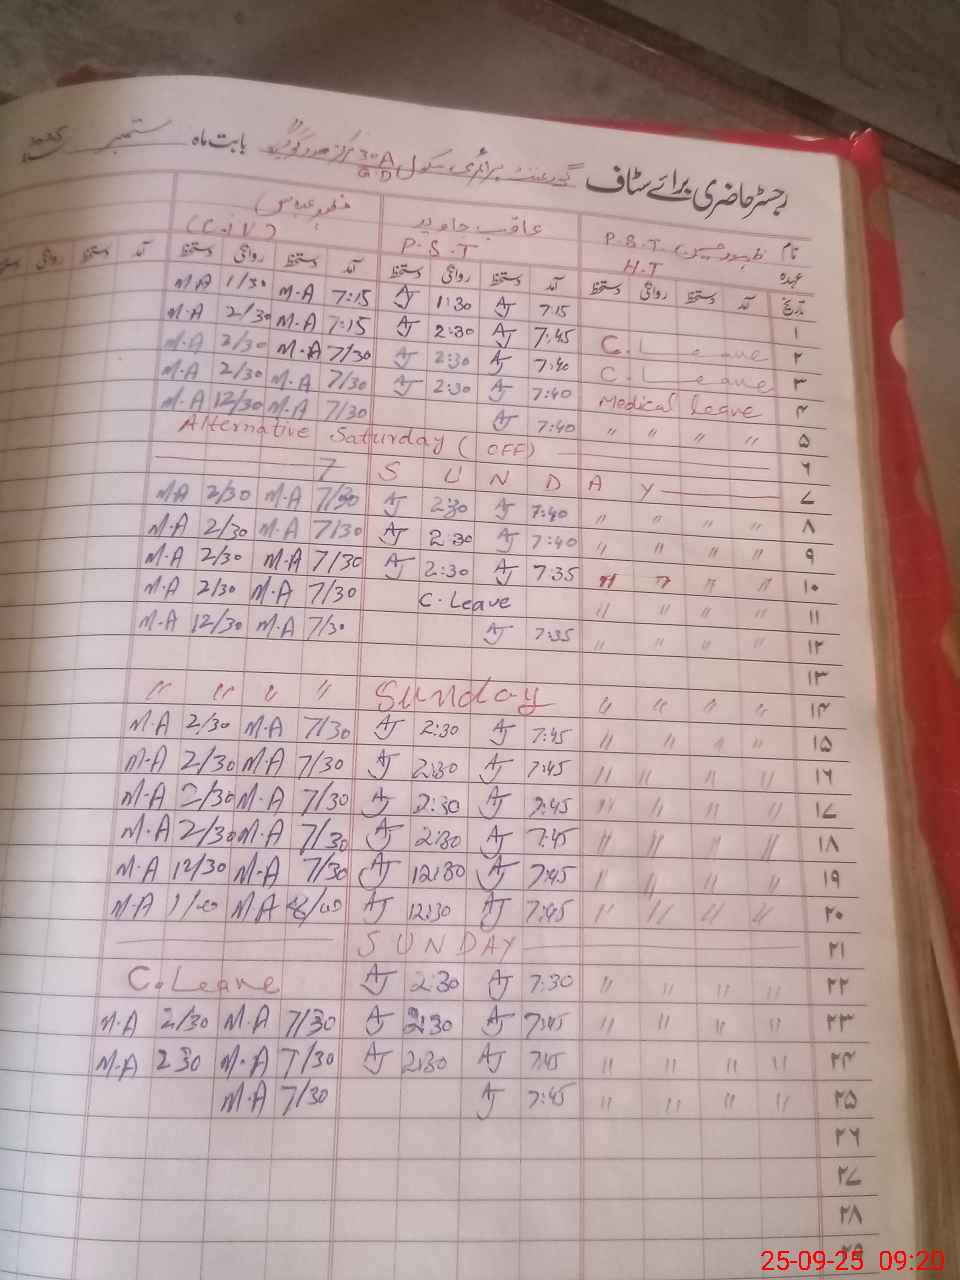 رجسٹر حاضری برائے سٹاف گورنمنٹ پرائمری سکول 30A GD بابت ماہ ستمبر 2025
نام ظہور حسین P.S.T عاقب جاوید
عہدہ H.T P.S.T (C.IV)
تاریخ آمد دستخط روانگی دستخط آمد دستخط روانگی دستخط آمد دستخط روانگی دستخط آمد دستخط روانگی دستخط
۱ 7:15 AJ 1:30 AJ 7:15 M.A 1/30 M.A
۲ C. Leave 7:45 AJ 2:30 AJ 7:15 M.A 2/30 M.A
۳ C. Leave 7:40 AJ 2:30 AJ 7/30 M.A 2/30 M.A
۴ Medical leave 7:40 AJ 2:30 AJ 7/30 M.A 2/30 M.A
۵ " " " " 7:40 AJ 7/30 M.A 12/30 M.A
۶ Alternative Saturday (OFF)
۷ 7 S U N D A Y
۸ " " " " 7:40 AJ 2:30 AJ 7/30 M.A 2/30 M.A
۹ " " " " 7:40 AJ 2:30 AJ 7/30 M.A 2/30 M.A
۱۰ " " " " 7:35 AJ 2:30 AJ 7/30 M.A 2/30 M.A
۱۱ " " " " C. Leave 7/30 M.A 2/30 M.A
۱۲ " " " " 7:35 AJ 7/30 M.A 12/30 M.A
۱۳
۱۴ " " " " Sunday " " " "
۱۵ " " " " 7:45 AJ 2:30 AJ 7/30 M.A 2/30 M.A
۱۶ " " " " 7:45 AJ 2:30 AJ 7/30 M.A 2/30 M.A
۱۷ " " " " 7:45 AJ 2:30 AJ 7/30 M.A 2/30 M.A
۱۸ " " " " 7:45 AJ 2:30 AJ 7/30 M.A 2/30 M.A
۱۹ " " " " 7:45 AJ 12:30 AJ 7/30 M.A 12/30 M.A
۲۰ " " " " 7:45 AJ 12:30 AJ M.A M.A
۲۱ SUNDAY
۲۲ " " " " 7:30 AJ 2:30 AJ C. Leave
۲۳ " " " " 7:45 AJ 2:30 AJ 7/30 M.A 2/30 M.A
۲۴ " " " " 7:45 AJ 2:30 AJ 7/30 M.A 2 30 M.A
۲۵ " " " " 7:45 AJ 7/30 M.A
۲۶
۲۷
۲۸
۲۹
25-09-25 09:20